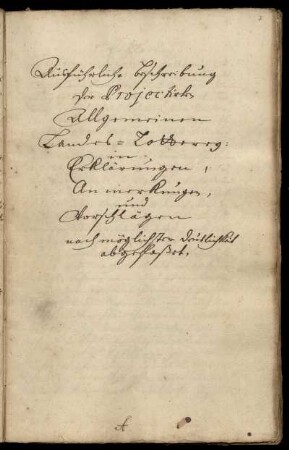 Ausführliche Beschreibung
der Projectirten
Allgemeinen
Landes=Lotterey,
in
Erklärungen,
Anmerkungen,
und
Vorschlägen
nach möglichster Deutlichkeit
abgefaßet.
A